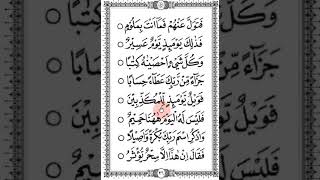 فَتَوَلَّ عَنْهُمْ فَمَا أَنْتَ بِمَلُومٍ
فَذٰلِكَ يَوْمَئِذٍ يَوْمٌ عَسِيْرٌ
وَكُلَّ شَيْءٍ أَحْصَيْنٰهُ كِتٰبًا
جَزَآءً مِّنْ رَّبِّكَ عَطَآءً حِسَابًا
فَوَيْلٌ يَّوْمَئِذٍ لِّلْمُكَذِّبِيْنَ
فَلَيْسَ لَهُ الْيَوْمَ هٰهُنَا حَمِيْمٌ
وَاذْكُرِ اسْمَ رَبِّكَ بُكْرَةً وَّأَصِيْلًا
فَقَالَ إِنْ هٰذَآ إِلَّا سِحْرٌ يُّؤْثَرُ